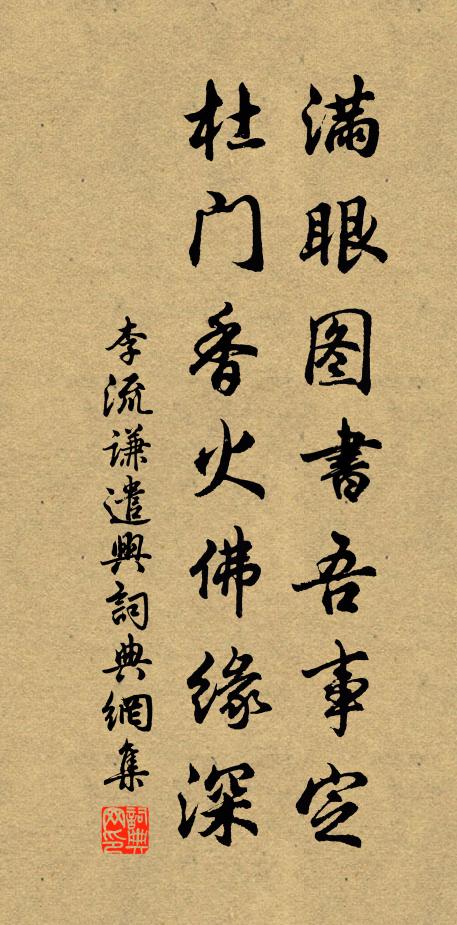 满眼图书吾事定
杜门香火佛缘深
李流谦遣興詞典網集
詞典网印